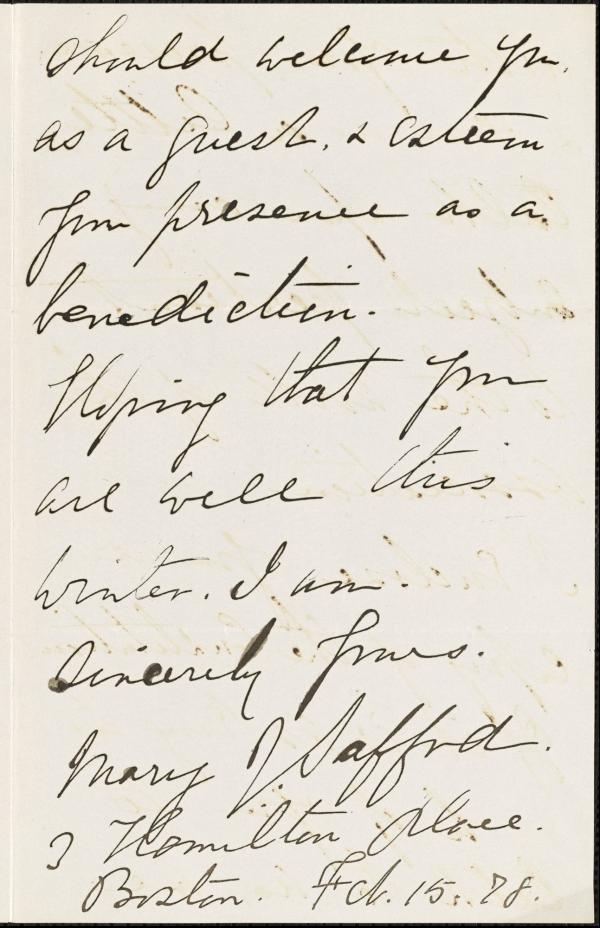 should welcome you
as a guest, & esteem
your presence as a
benediction.
Hoping that you
are well this
winter. I am.
Sincerely Yours.
Mary J Safford.
3 Hamilton Place.
Boston. Feb. 15. 78.